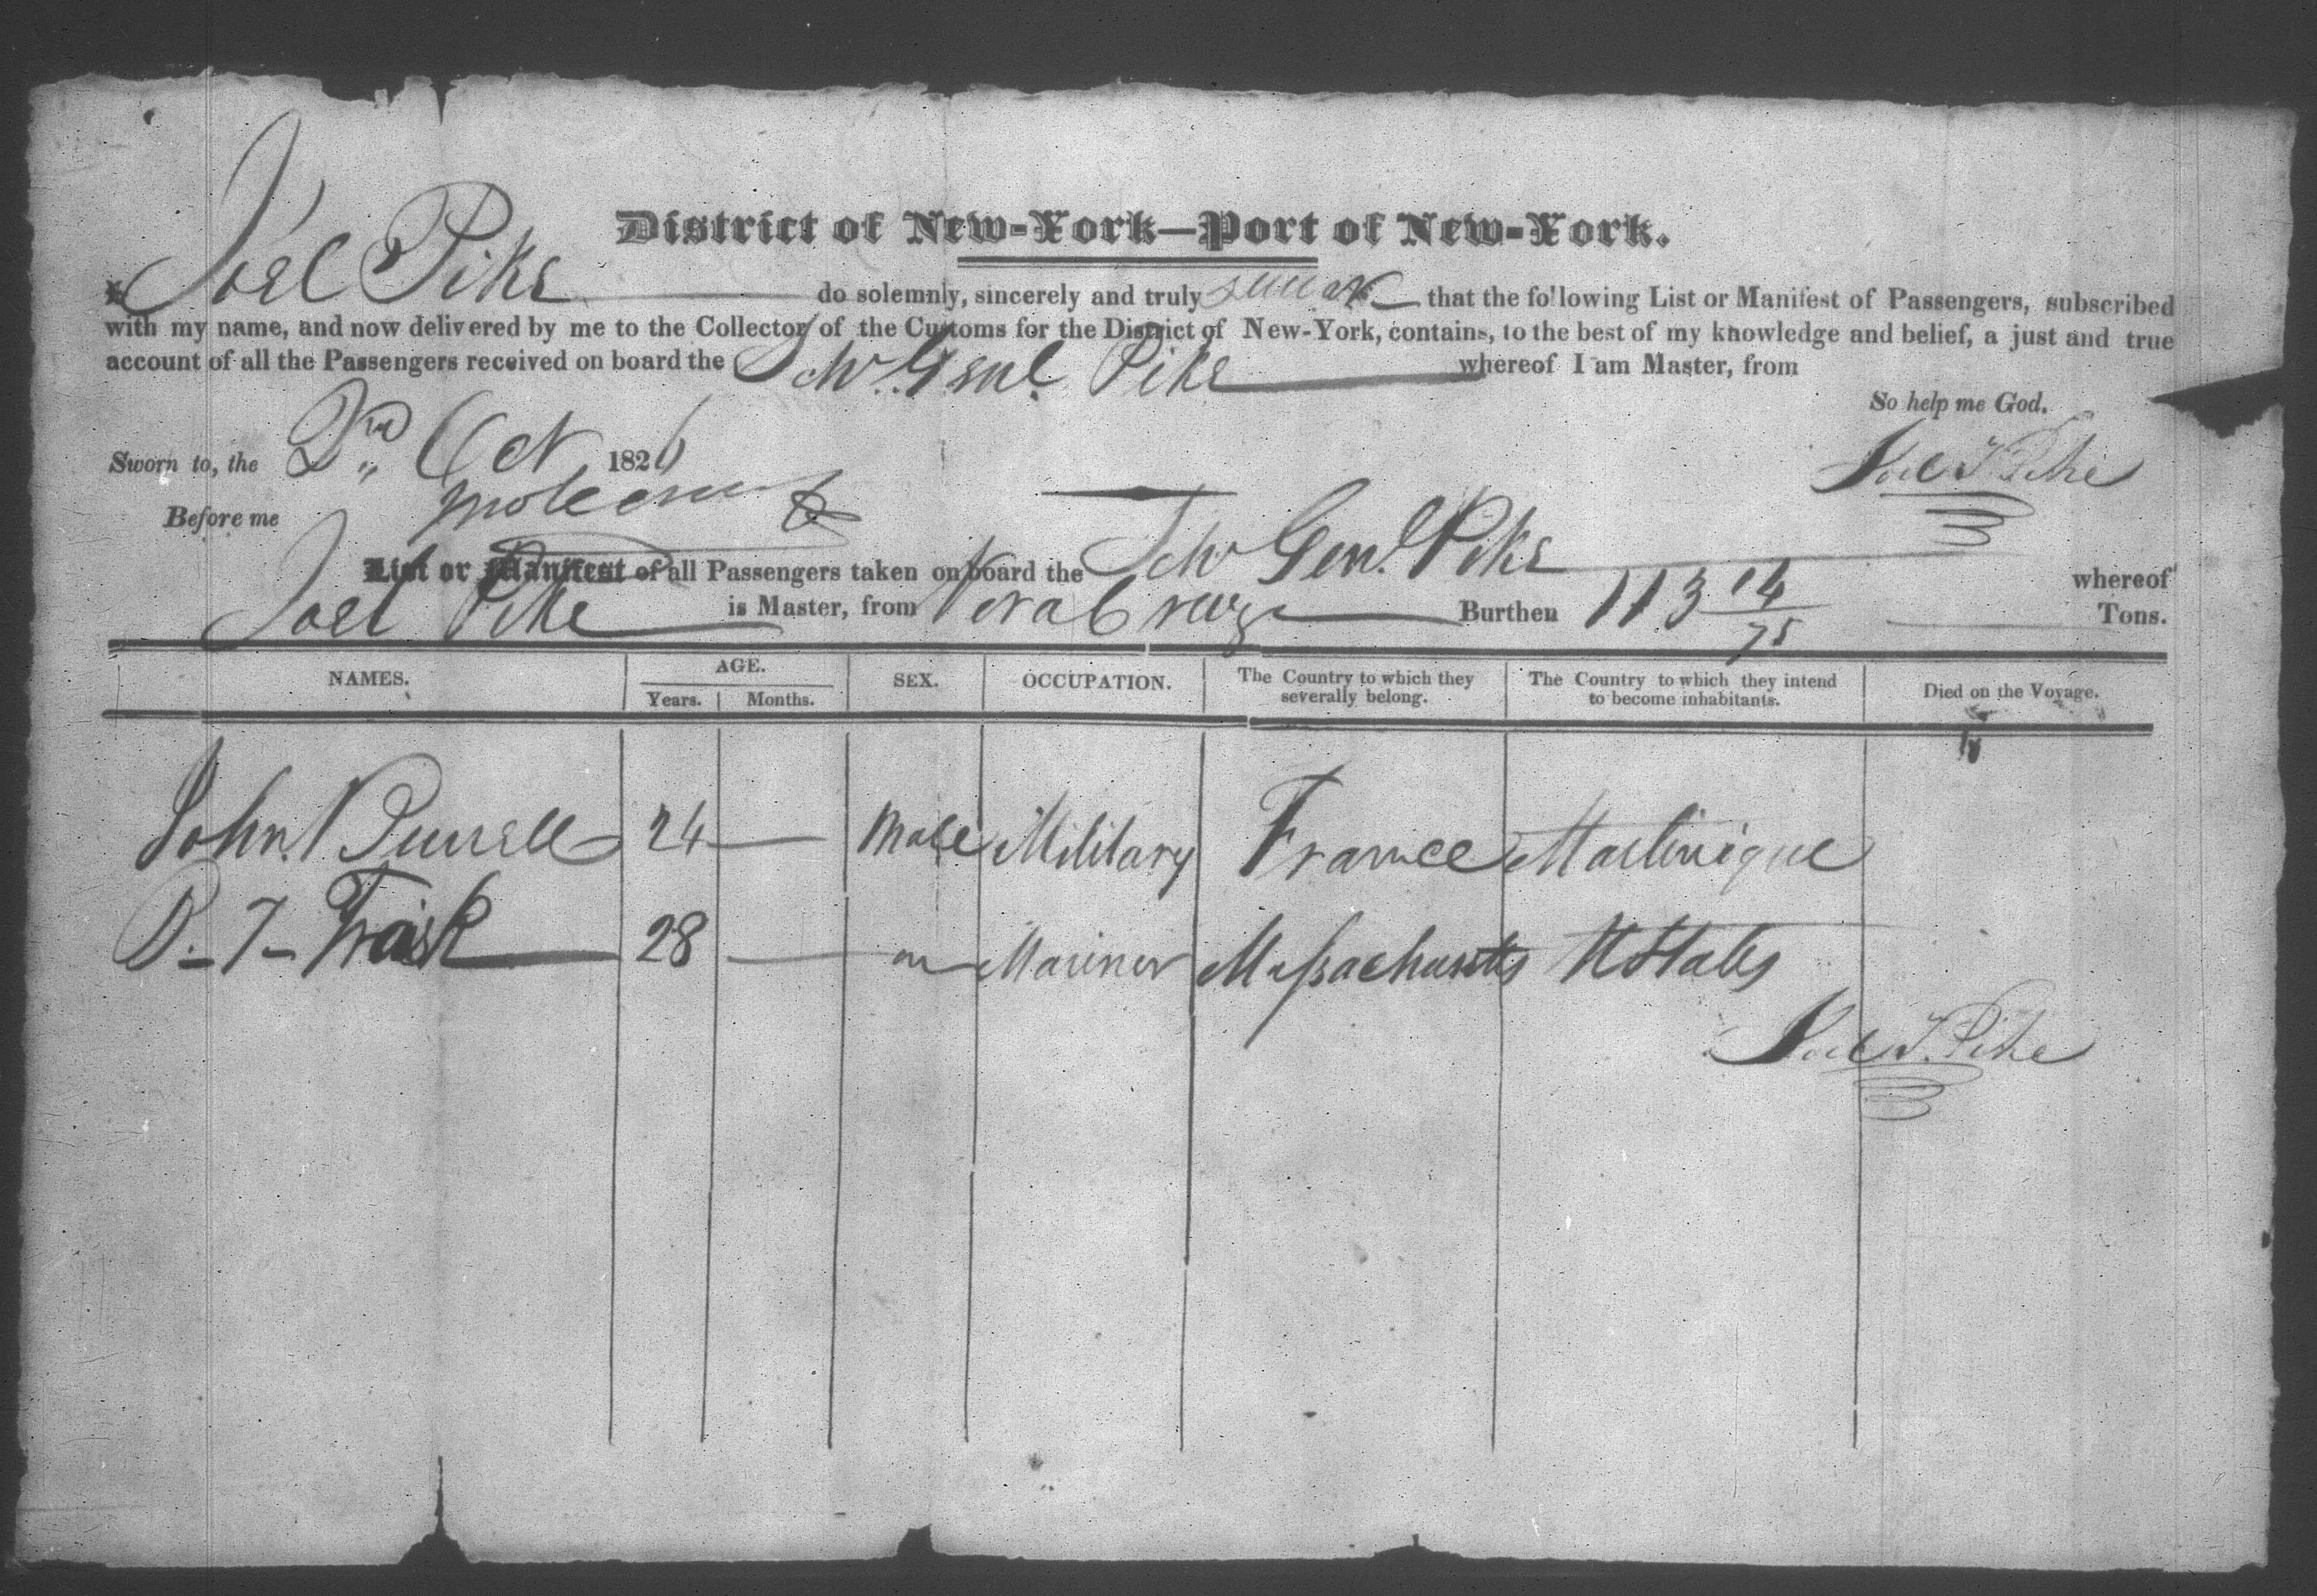 District of New-York—Port of New-York.
I, Joel Pike do solemnly, sincerely and truly swear that the following List or Manifest of Passengers, subscribed
with my name, and now delivered by me to the Collector of the Customs for the District of New-York, contains, to the best of my knowledge and belief, a just and true
account of all the Passengers received on board the Schr. Genl. Pike whereof I am Master, from
So help me God.
Sworn to, the Oct 1826
Joel T Pike
Before me
List or Manifest of all Passengers taken on board the Schr Genl. Pike whereof
Joel Pike is Master, from Vera Cruz Burthen 113 14/75 Tons.
NAMES. AGE. SEX. OCCUPATION. The Country to which they severally belong. The Country to which they intend to become inhabitants. Died on the Voyage.
Years. Months.
John 24 — Male Military France Martinique
T- Trask 28 — Mariner Massachusetts U States
Joel T. Pike